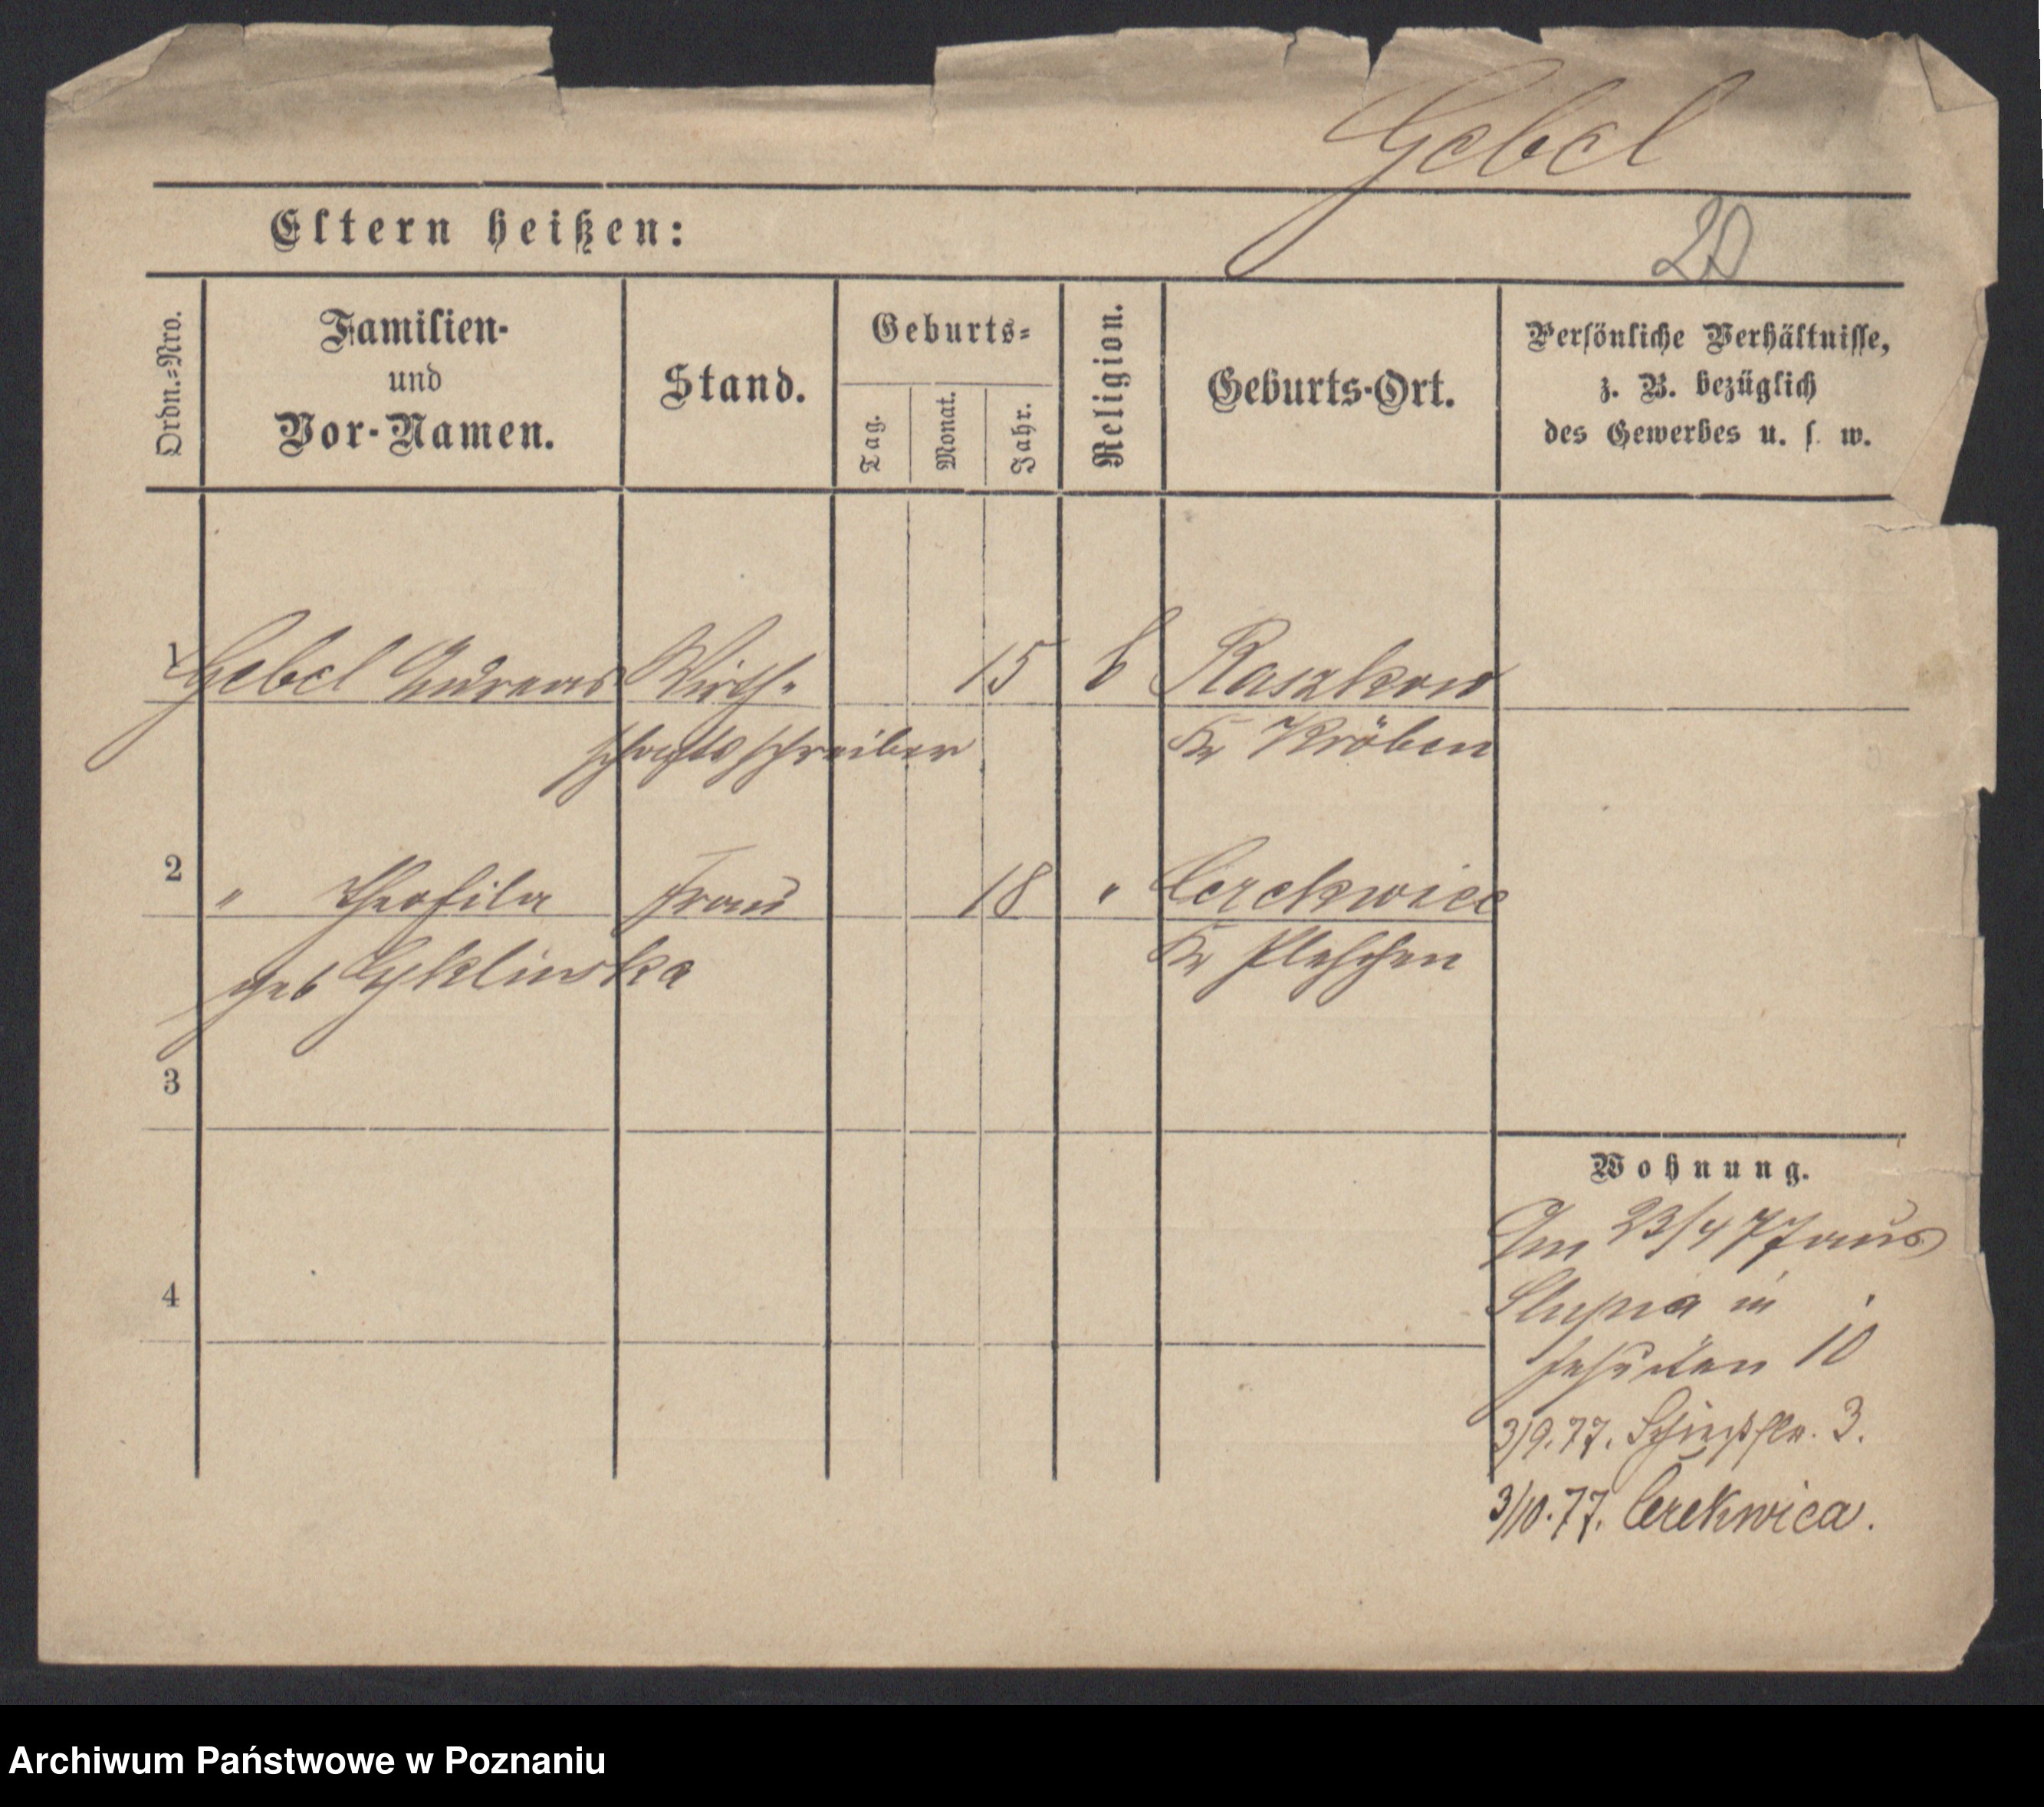 Gebel
Eltern heißen:
20
Ordn.=Nro.
Familien-
und
Vor-Namen.
Stand.
Geburts=
Tag.
Monat.
Jahr.
Religion.
Geburts-Ort.
Persönliche Verhältnisse,
z. B. bezüglich
des Gewerbes u. s. w.
1 Gebel Andreas Wirth- 15 C Raszkow
schaftsschreiber Kr Kröben
2 " Theofila Frau 18 " Cerekwice
geb Kr Pleschen
3
4
Wohnung.
Am 23/4 77 aus
Slupia in
Jesuiten 10
3/9. 77. Schießstr. 3.
3/10. 77. Cerekwica.
Archiwum Państwowe w Poznaniu